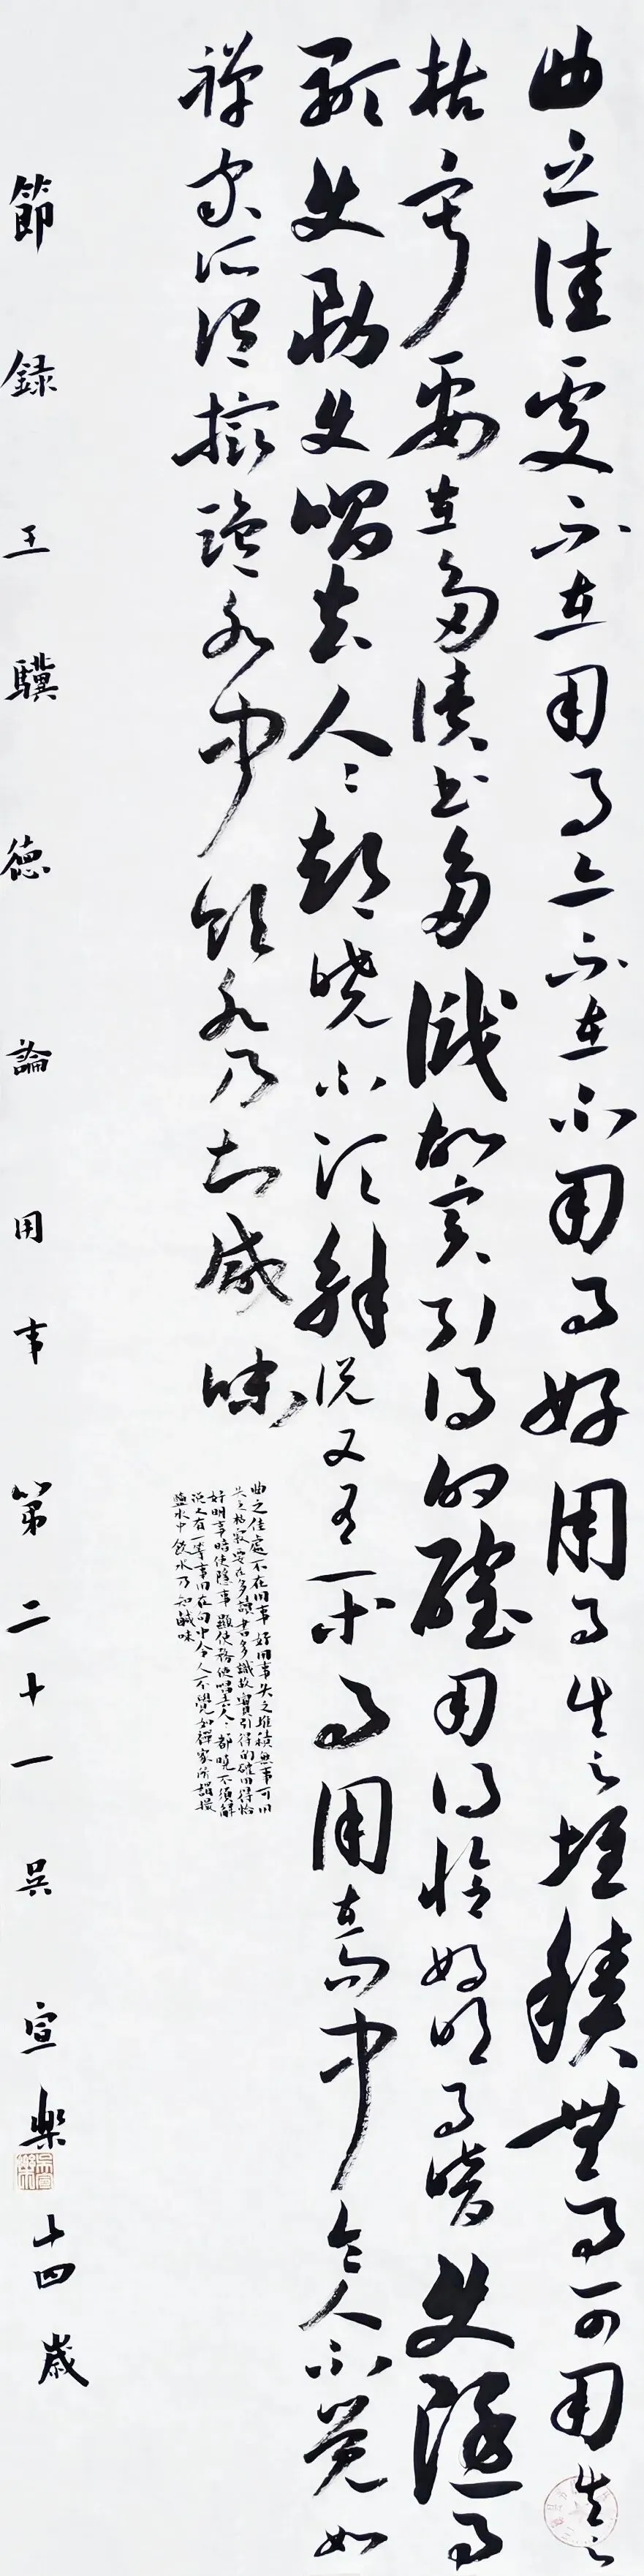 曲之佳處不在用事亦不在不用事好用事失之堆積無事可用失之
枯寂要在多讀書多識故實引得的確用得恰好明事暗使隱事
顯使務使唱去人人都曉不須解說又有一等事用在句中令人不覺如
禪家所謂撮鹽水中飲水乃知鹹味
曲之佳處不在用事好用事失之堆積無事可用
失之枯寂要在多讀書多識故實引得的確用得恰
好明事暗使隱事顯使務使唱去人人都曉不須解
說又有一等事用在句中令人不覺如禪家所謂撮
鹽水中飲水乃知鹹味
節録王驥德論用事第二十一吳宣樂十四歲